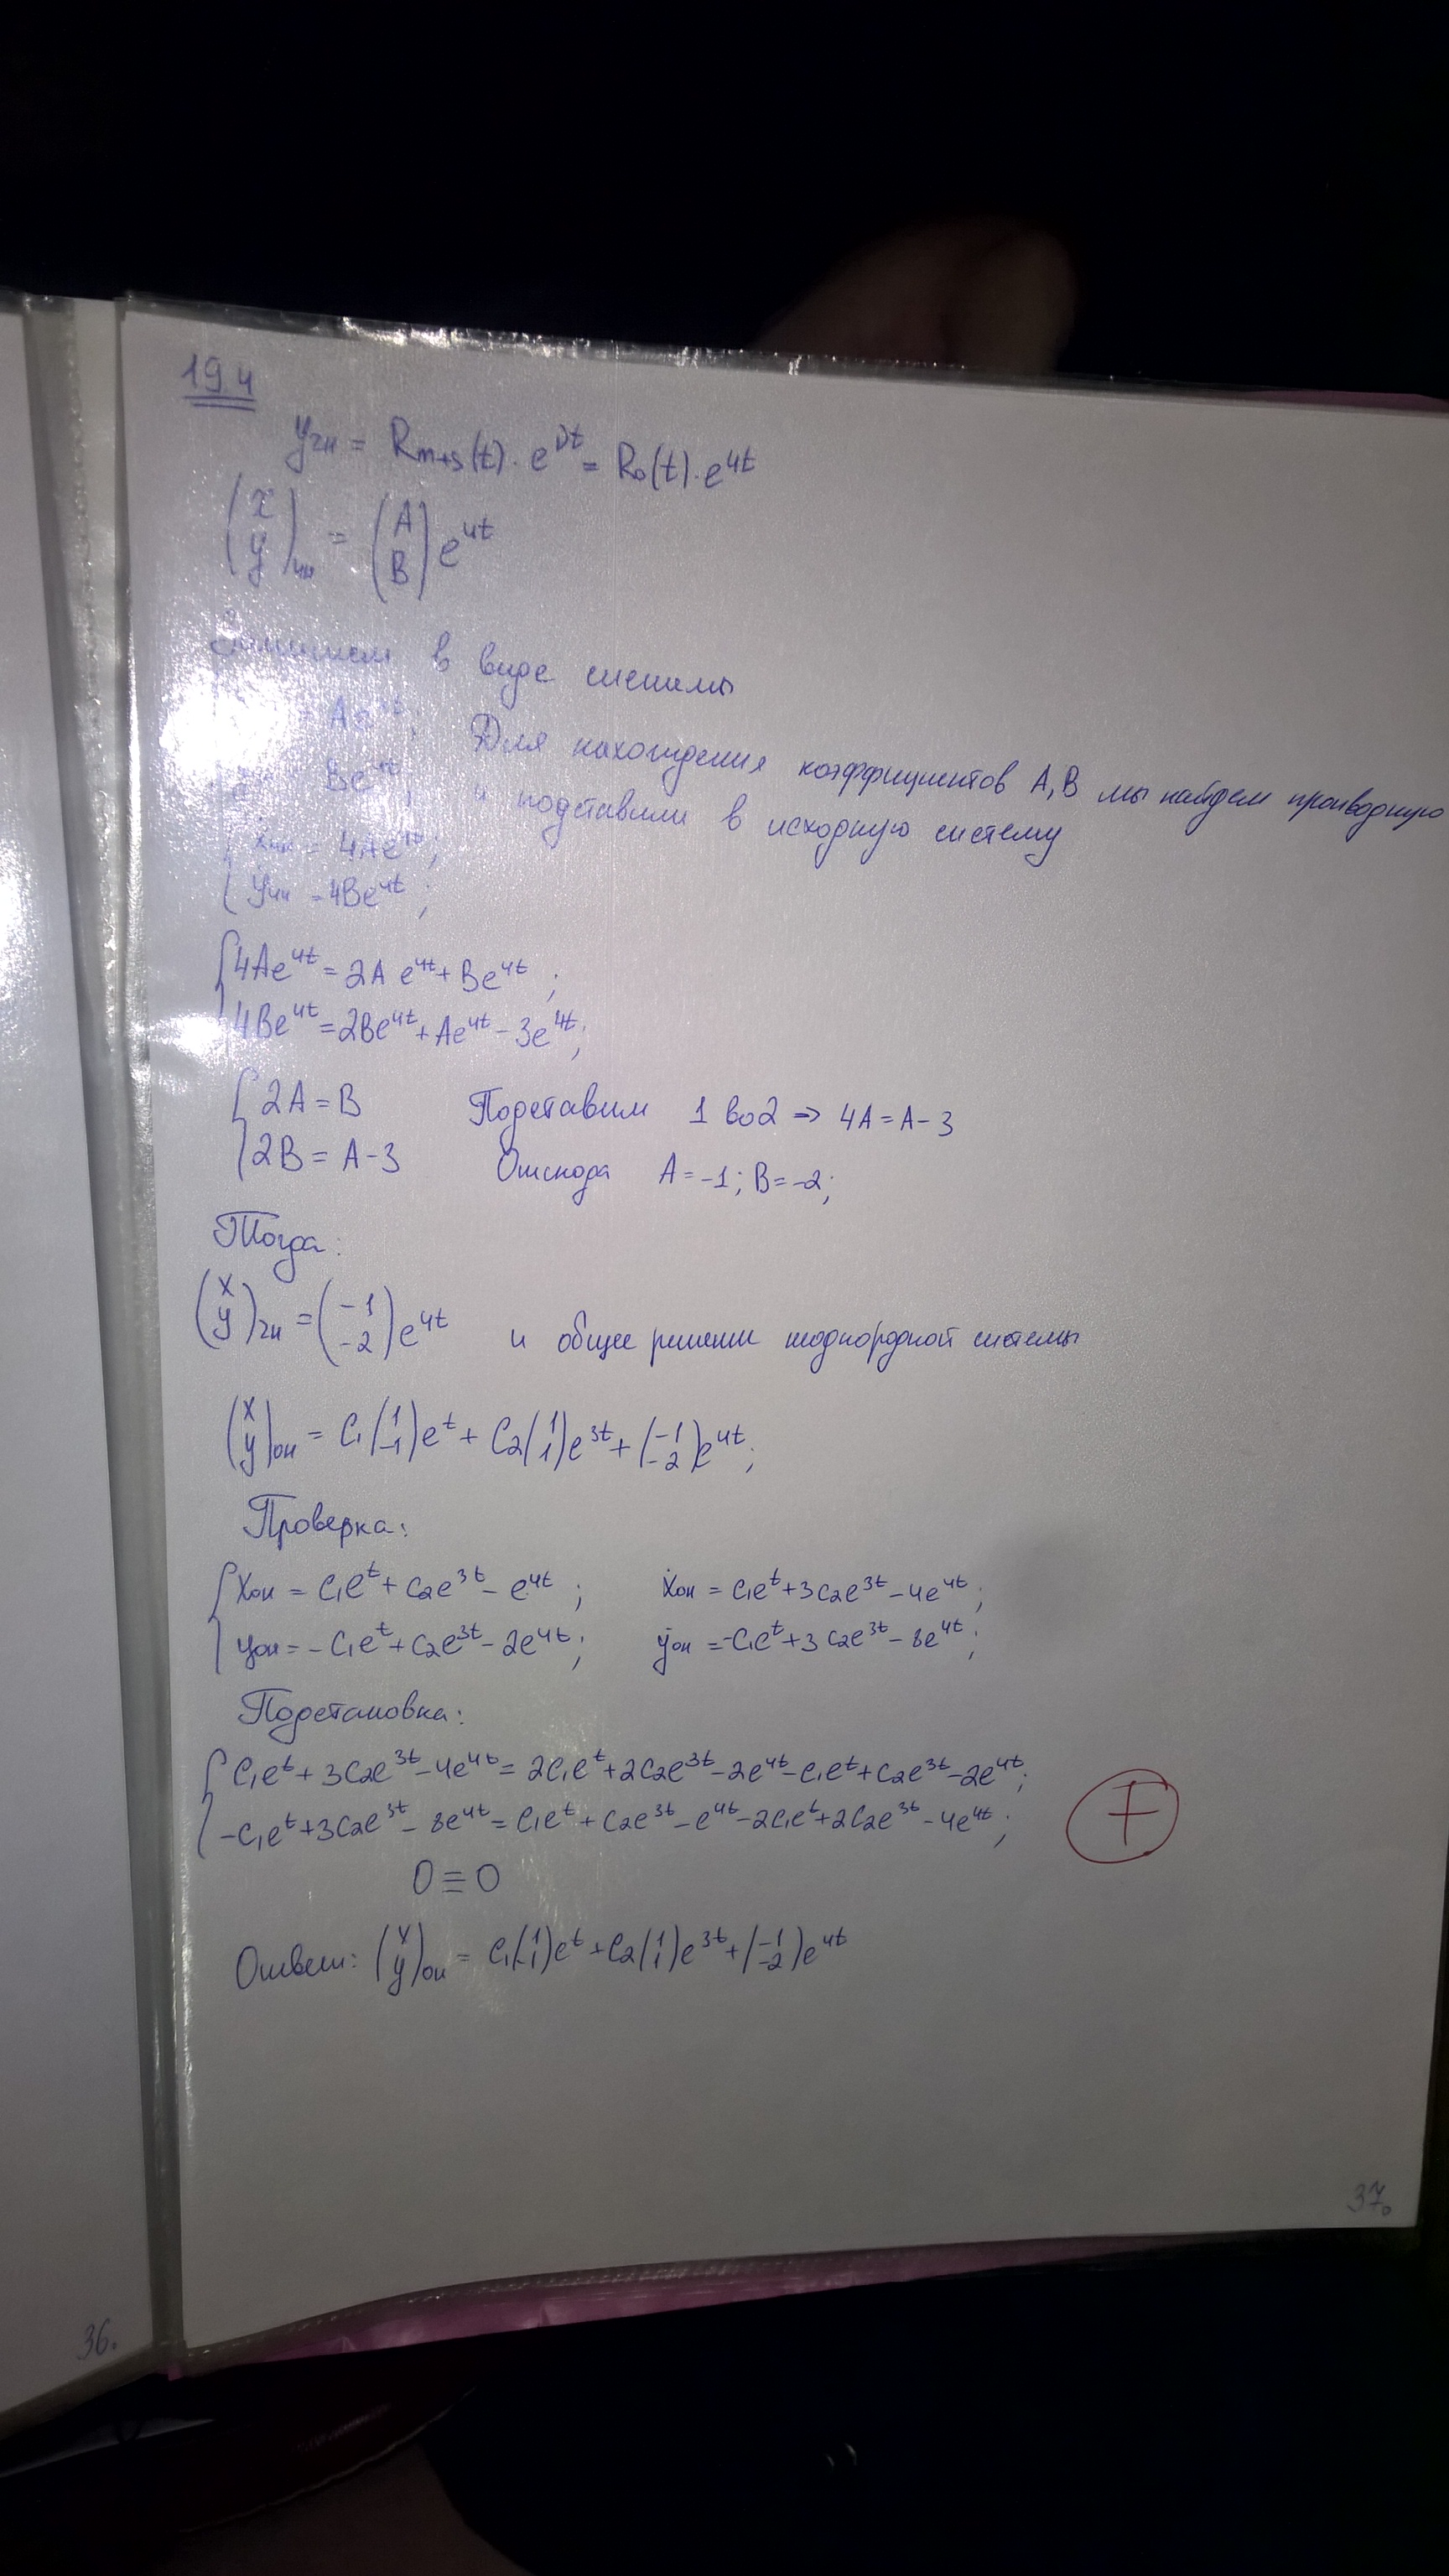 19.4
yчн = Rm+s(t)·e^γt = R₀(t)·e^4t
(x y)чн = (A B) e^4t
Запишем в виде системы
Ae^4t; Для нахождения коэффициентов A, B мы найдем производную
Be^4t; и подставим в исходную систему
{ẋчн = 4Ae^4t;
{ẏчн = 4Be^4t;
{4Ae^4t = 2Ae^4t + Be^4t;
{4Be^4t = 2Be^4t + Ae^4t - 3e^4t;
{2A = B Подставим 1 во 2 ⇒ 4A = A - 3
{2B = A - 3 Отсюда A = -1; B = -2;
Тогда:
(x y)чн = (-1 -2) e^4t и общее решение неоднородной системы
(x y)он = C₁(1 -1)e^t + C₂(1 1)e^3t + (-1 -2)e^4t;
Проверка:
{xон = C₁e^t + C₂e^3t - e^4t; ẋон = C₁e^t + 3C₂e^3t - 4e^4t;
{yон = -C₁e^t + C₂e^3t - 2e^4t; ẏон = -C₁e^t + 3C₂e^3t - 8e^4t;
Подстановка:
{C₁e^t + 3C₂e^3t - 4e^4t = 2C₁e^t + 2C₂e^3t - 2e^4t - C₁e^t + C₂e^3t - 2e^4t;
{-C₁e^t + 3C₂e^3t - 8e^4t = C₁e^t + C₂e^3t - e^4t - 2C₁e^t + 2C₂e^3t - 4e^4t;
+
0 ≡ 0
Ответ: (x y)он = C₁(1 -1)e^t + C₂(1 1)e^3t + (-1 -2)e^4t
37.
36.